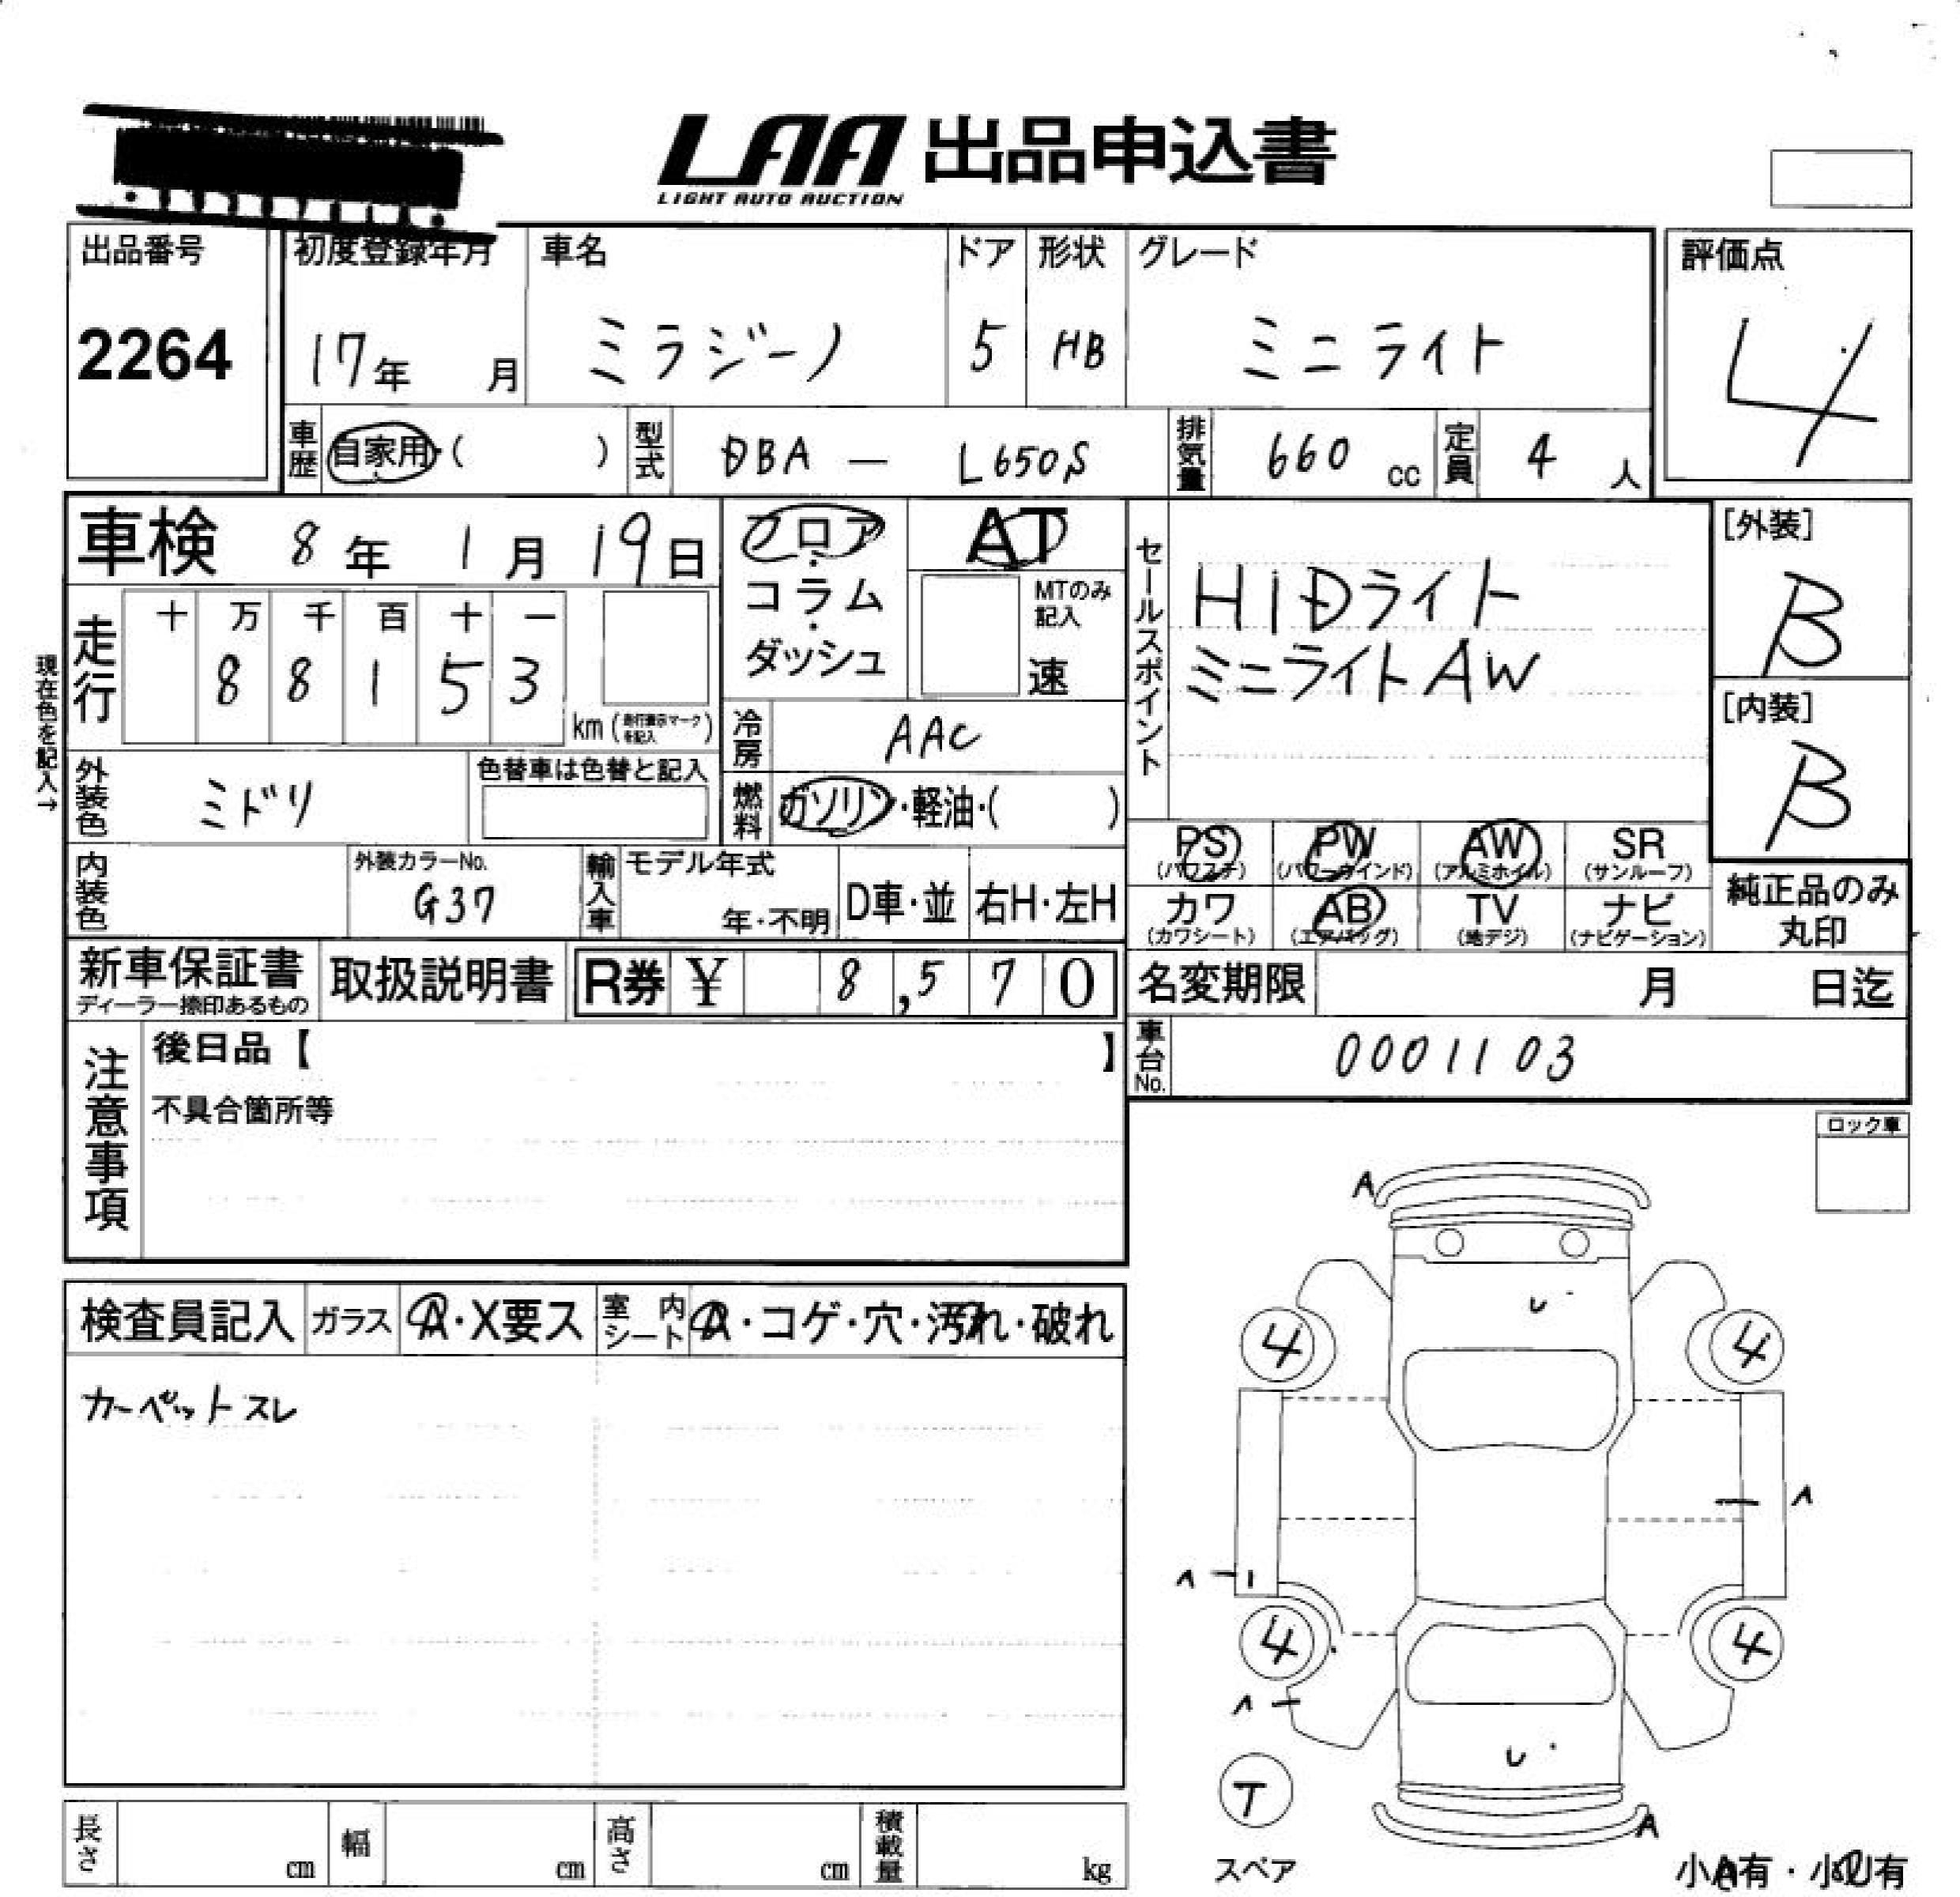 LAA 出品申込書
LIGHT AUTO AUCTION
出品番号 初度登録年月 車名 ドア 形状 グレード 評価点
2264 17年 月 ミラジーノ 5 HB ミニライト 4
車歴 自家用・( ) 型式 DBA - L650S 排気量 660 cc 定員 4 人
車検 8年 1月 19日 フロア・コラム・ダッシュ AT
MTのみ記入 速
セールスポイント
HiDライト
ミニライトAW
[外装]
B
[内装]
B
現在色を記入→
走行 十 万 千 百 十 一
8 8 1 5 3
km (走行表示マークを記入)
冷房 AAC
外装色 ミドリ 色替車は色替と記入
燃料 ガソリン・軽油・( )
PS (パワステ) PW (パワーウインド) AW (アルミホイル) SR (サンルーフ)
カワ (カワシート) AB (エアバッグ) TV (地デジ) ナビ (ナビゲーション)
純正品のみ
丸印
内装色 外装カラーNo. G37 輸入車 モデル年式 年・不明 D車・並 右H・左H
新車保証書 ディーラー捺印あるもの 取扱説明書 R券 ¥ 8,570
名変期限 月 日迄
車台No. 0001103
注意事項
後日品【 】
不具合箇所等
ロック車
検査員記入 ガラス A・X要ス 室内シート A・コゲ・穴・汚れ・破れ
カーペットスレ
A
4 4
4 4
T
スペア
A
小A有・小U有
長さ cm 幅 cm 高さ cm 積載量 kg